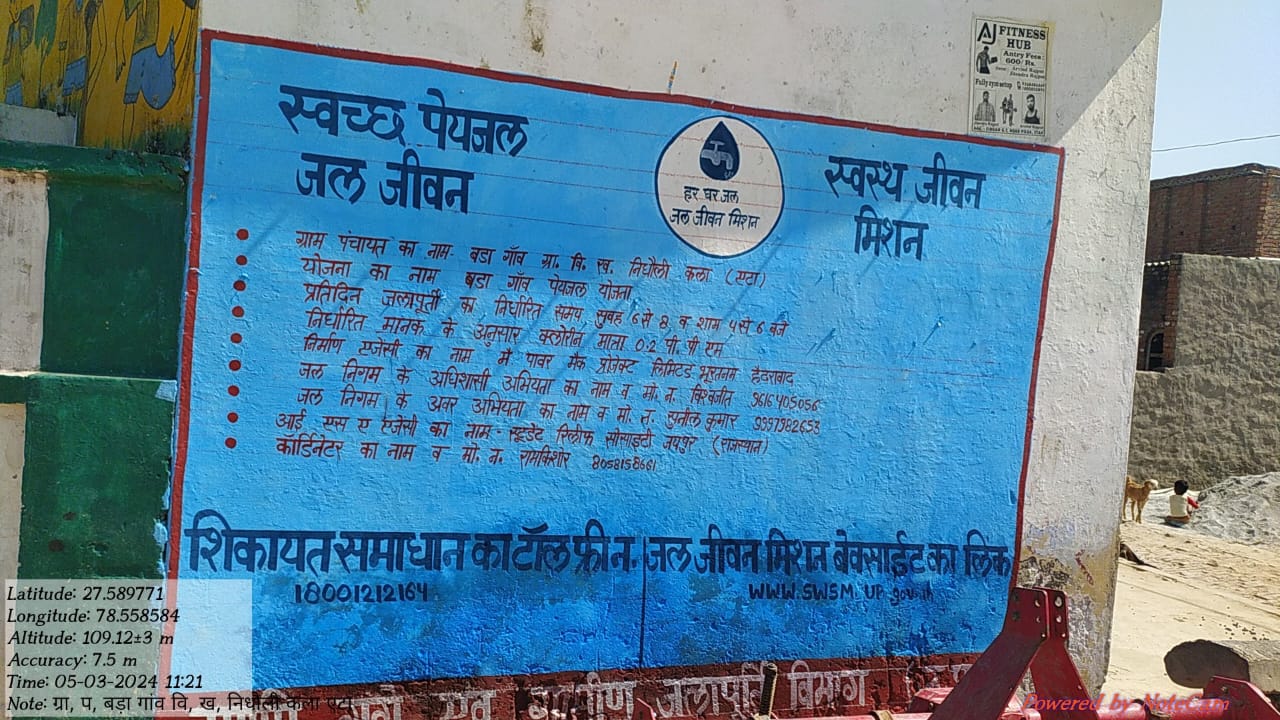 स्वच्छ पेयजल
जल जीवन
हर घर जल
जल जीवन मिशन
स्वस्थ जीवन
मिशन
ग्राम पंचायत का नाम- बडा गाँव ग्रा. वि. ख. निधौली कला (एटा)
योजना का नाम बडा गाँव पेयजल योजना
प्रतिदिन जलापूर्ती का निर्धारित समय सुबह 6 से 8 व शाम 4 से 6 बजे
निर्धारित मानक के अनुसार क्लोरीन मात्रा 0.2 पी. पी एम
निर्माण एजेंसी का नाम में पावर मैक प्रोजेक्ट लिमिटेड हैदराबाद
जल निगम के अधिशासी अभियंता का नाम व मो. न. विश्वजीत 9616405056
जल निगम के अवर अभियंता का नाम व मो. न. सुनील कुमार 9997982653
आई एस ए एजेंसी का नाम - स्टूडेंट रिलीफ सोसाइटी जयपुर (राजस्थान)
कॉर्डिनेटर का नाम व मो. न. रामकिशोर 8058158661
शिकायत समाधान का टॉल फ्री न.
18001212164
जल जीवन मिशन बेवसाईट का लिंक
WWW.SWSM.UP.gov.in
ग्रामीण जलापूर्ति विभाग
AJ FITNESS
HUB
Antry Fees:
600/ Rs.
Fully gym setup
Latitude: 27.589771
Longitude: 78.558584
Altitude: 109.12±3 m
Accuracy: 7.5 m
Time: 05-03-2024 11:21
Note: ग्रा, प, बड़ा गांव वि, ख, निधौली कला एटा
Powered by NoteCam